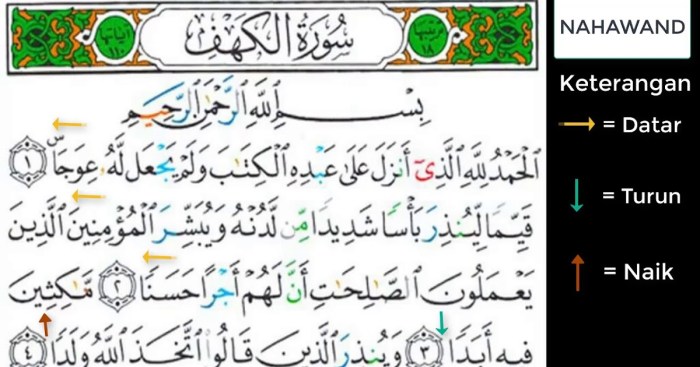 سُورَةُ الْكَهْفِ
ترتيبها ١٨
آياتها ١١٠
بِسْمِ اللَّهِ الرَّحْمَٰنِ الرَّحِيمِ
ٱلْحَمْدُ لِلَّهِ ٱلَّذِىٓ أَنزَلَ عَلَىٰ عَبْدِهِ ٱلْكِتَٰبَ وَلَمْ يَجْعَل لَّهُۥ عِوَجَاۜ ١
قَيِّمًا لِّيُنذِرَ بَأْسًا شَدِيدًا مِّن لَّدُنْهُ وَيُبَشِّرَ ٱلْمُؤْمِنِينَ ٱلَّذِينَ
يَعْمَلُونَ ٱلصَّٰلِحَٰتِ أَنَّ لَهُمْ أَجْرًا حَسَنًا ٢ مَّٰكِثِينَ
فِيهِ أَبَدًا ٣ وَيُنذِرَ ٱلَّذِينَ قَالُوا۟ ٱتَّخَذَ ٱللَّهُ وَلَدًا ٤
NAHAWAND
Keterangan
= Datar
= Turun
= Naik